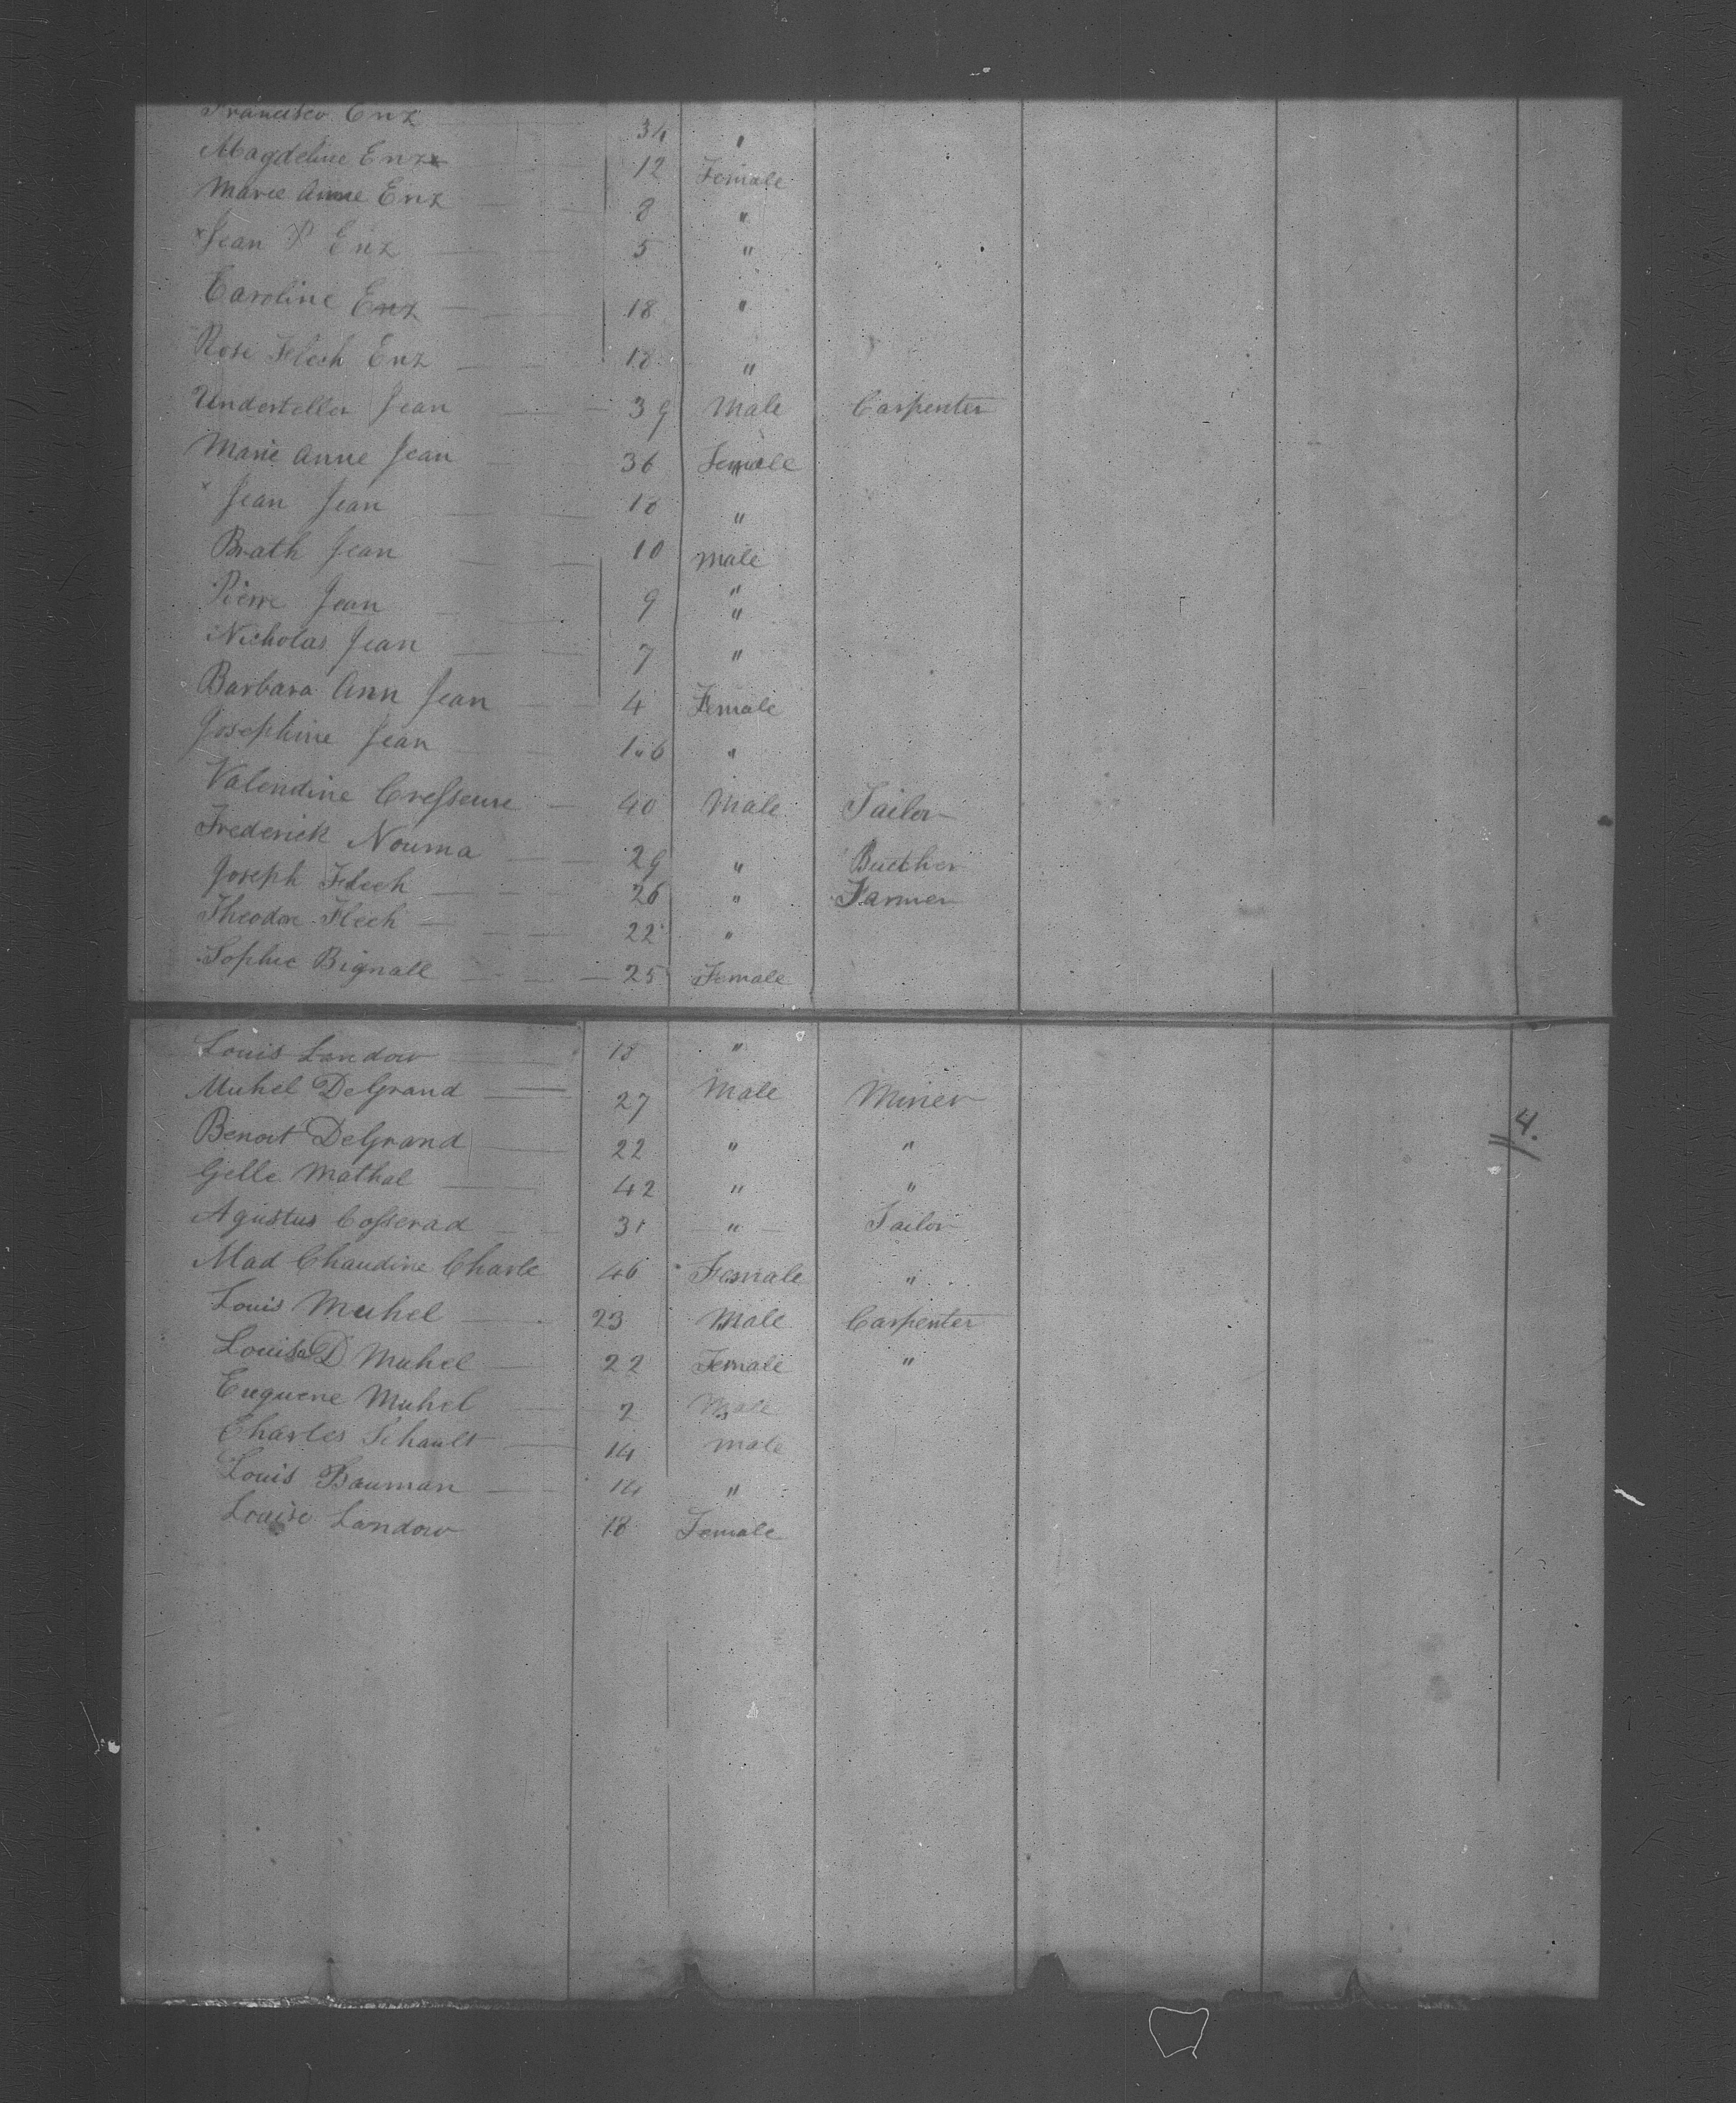 Francisco Enz 34 "
Magdeline Enz 12 Female
Marie Anne Enz 8 "
x Jean P Enz 5 "
Caroline Enz 18 "
Rosi Flech Enz 18 "
Underteller Jean 39 Male Carpenter
Marie Anne Jean 36 Female
x Jean Jean 18 "
Brath Jean 10 Male
Pierre Jean 9 " "
Nicholas Jean 7 "
Barbara Ann Jean 4 Female
Josephine Jean 1"6 "
Valendine Cresseure 40 Male Tailor
Frederick Nouma 29 " Butcher
Joseph Flech 26 " Farmer
Theodore Flech 22 "
Sophie Bignall 25 Female
Louis Landow 18 "
Muhel DeGrand 27 Male Miner
Benoit DeGrand 22 " "
4.
Gelle Mathal 42 " "
Agustus Cosserad 31 " Tailor
Mad Chaudine Charle 46 Female "
Louis Muhel 23 Male Carpenter
Louisa D Muhel 22 Female "
Euguene Muhel 2 Male
Charles Schault 14 male
Louis Bauman 14 "
Louise Landow 18 Female